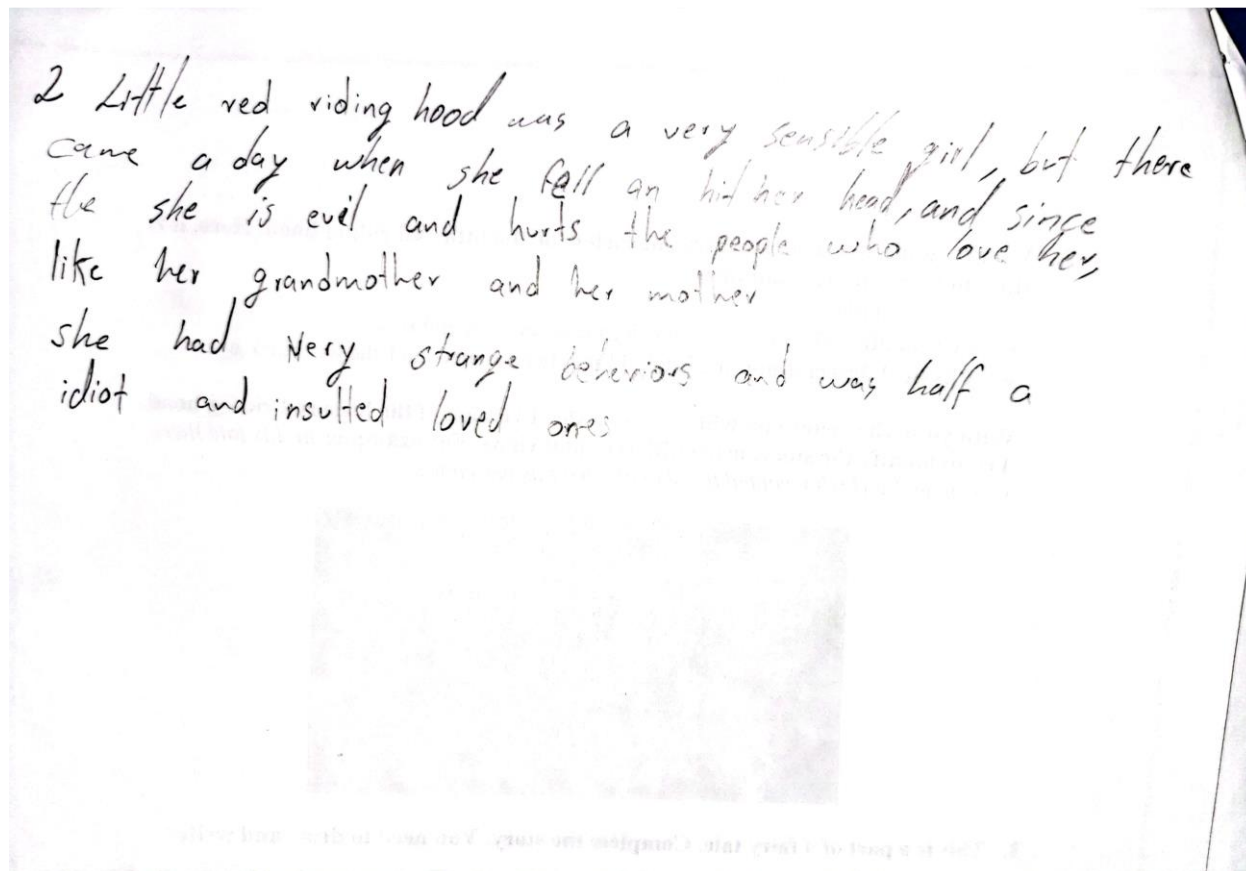 2 Little red riding hood was a very sensible girl, but there
came a day when she fall an hit her head, and since
the she is evil and hurts the people who love her,
like her grandmother and her mother
she had very strange behaviors and was half a
idiot and insulted loved ones